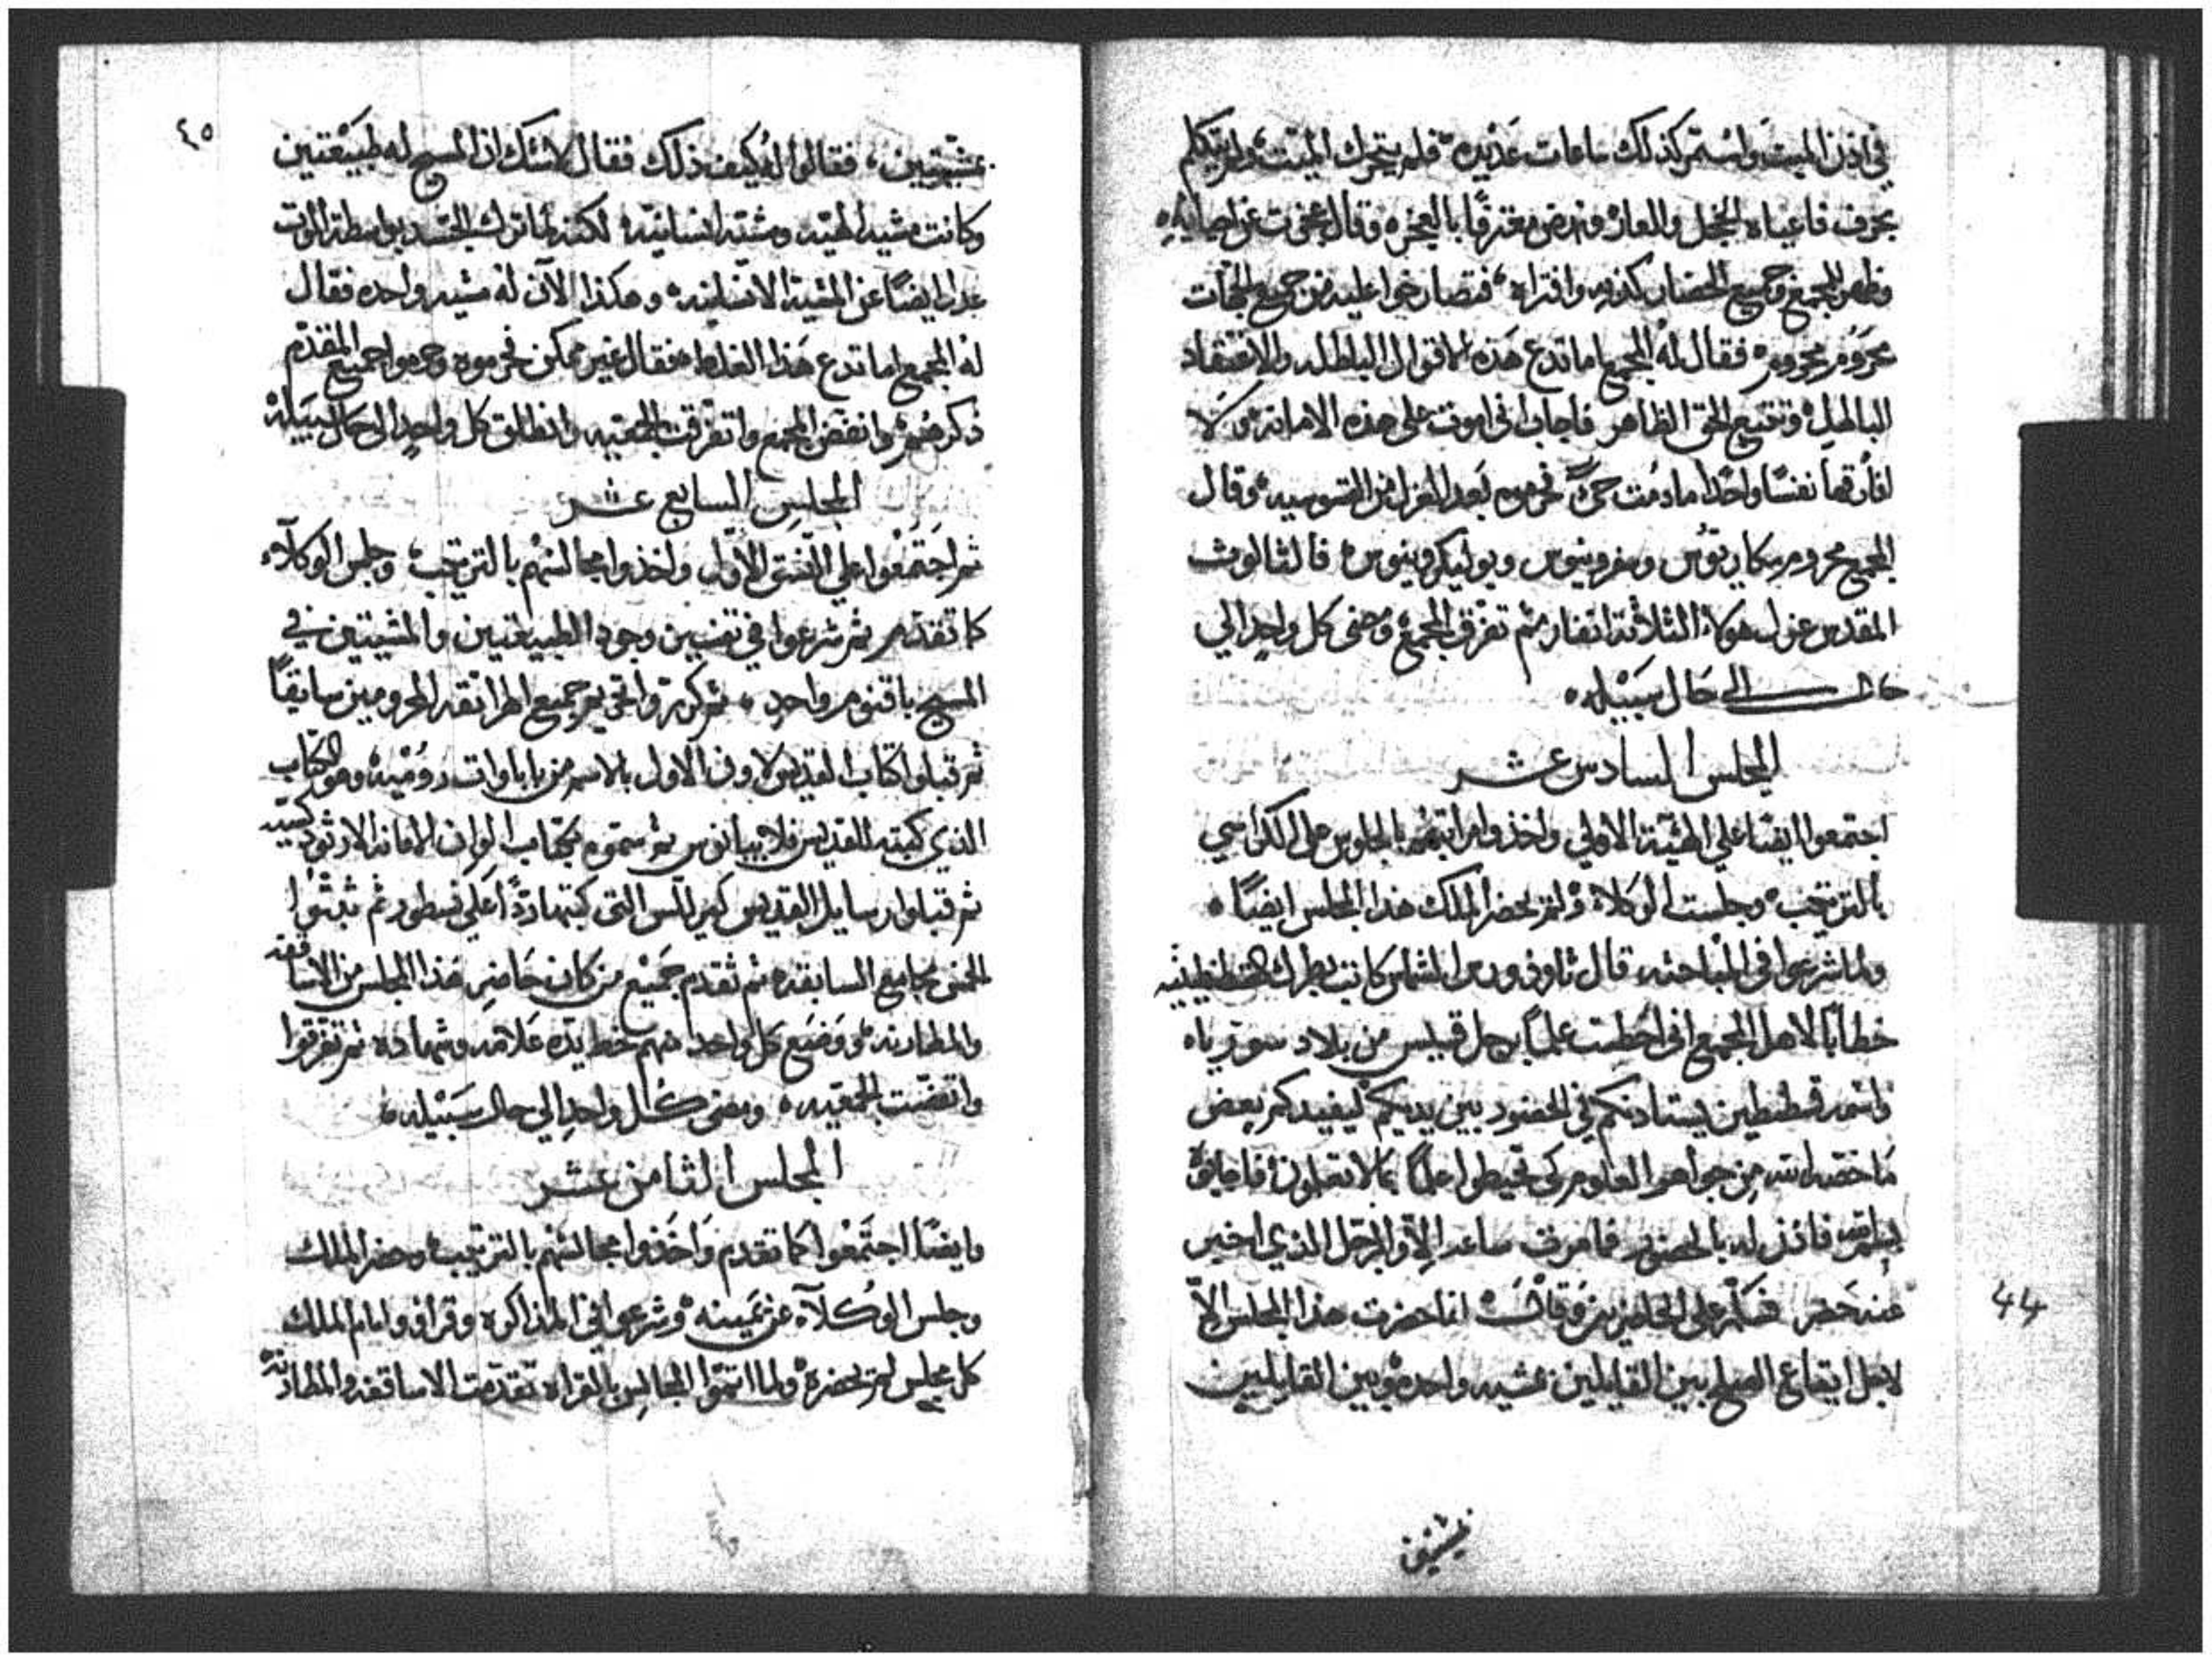 في اذن الميت واستمر كذلك ساعات عديده فلم يتحرك الميت ولم يتكلم
بحرف فاعياه الخجل والعار ونهض معترفًا بالعجز وقال عجزت عن احيايه
فظهر للمجمع وجميع الحضار كذبه وافتراه فتصارخوا عليه من جميع الجهات
محروم محروم فقال له المجمع اما تدع هذه الاقوال الباطله والاعتقاد
الباطل وتتبع الحق الظاهر فاجاب اني اموت على هذه الامانه ولا
افارقها نفسًا واحدًا ما دمت حيً فحرموه بعد العزل من القسوسيه وقال
المجمع محروم مكاريوس وبوليكرونيوس فالثالوث
المقدس عزل هولاء الثلاثة انفار ثم تفرق المجمع ومضى كل واحد الي
حال الى حال سبيله
المجلس السادس عشر
اجتمعوا ايضًا علي الهيئة الاولي واخذوا مراتبهم بالجلوس على الكراسي
بالترتيب وجلست الوكلاء ولم يحضر الملك هذا المجلس ايضًا
ولما شرعوا في المباحثه قال الشماس كاتب بطرك القسطنطينيه
خطابًا لاهل المجمع اني احطت علمًا برجل قسيس من بلاد سورياه
واسمه قسطنطين يستاذنكم في الحضور بين يديكم ليفيدكم بعض
ما خصه الله من جواهر العلوم كي تحيطوا علمًا بما لا تعلمون فاجابوه
فائذن له بالحضور فما مرت ساعه الا والرجل الذي اخبر
عنه حضر فسلم على الحاضرين وقال انا حضرت هذا المجلس الا
لاجل ايقاع الصلح بين القايلين بمشيه واحده وبين القايلين
بمشيتين
٤٤
٤٥
بمشيتين فقالوا له كيف ذلك فقال لا شك ان المسيح له طبيعتين
وكانت مشيه الهيه ومشيه انسانيه لكنه لما ترك الجسد بواسطة الموت
عدل ايضًا عن المشية الانسانيه وهكذا الآن له مشيه واحده فقال
له المجمع اما تدع هذا الغلط فقال غير ممكن فحرموه وحرموا جميع المقدم
ذكرهم وانفض المجمع وتفرقت الجمعيه وانطلق كل واحدٍ الى حال سبيله
المجلس السابع عشر
ثم اجتمعوا علي النسق الاول واخذوا مجالسهم بالترتيب وجلس الوكلآء
كما تقدم ثم شرعوا في تبيين وجود الطبيعتين والمشيتين في
المسيح باقنوم واحدٍ ثم كرروا تحريم جميع الهراتقه المحرومين سابقًا
ثم قبلوا كتاب القديس لاون الاول بالاسم من باباوات روميه وهو الكتاب
الذي كتبه القديس فلابيانوس ثم سموه بكتاب الامانه الارثودكسيه
ثم قبلوا رسايل القديس كيرللس التي كتبها ردًا علي نسطور ثم ثبتوا
الخمس مجامع السابقه ثم تقدم جميع من كان حاضر هذا المجلس من الاساقفه
والمطارنه ووضع كل واحد منهم خط يده علامه وشهاده ثم تفرقوا
وانفضت الجمعيه ومضى كل واحدٍ الي حال سبيله
المجلس الثامن عشر
وايضًا اجتمعوا كما تقدم واخذوا مجالسهم بالترتيب وحضر الملك
وجلس الوكلآء عن يمينه وشرعوا في المذاكره وقراوا امام الملك
كل مجلس لم يحضره ولما اتموا المجالس بالقراه تقدمت الاساقفه والمطارنه